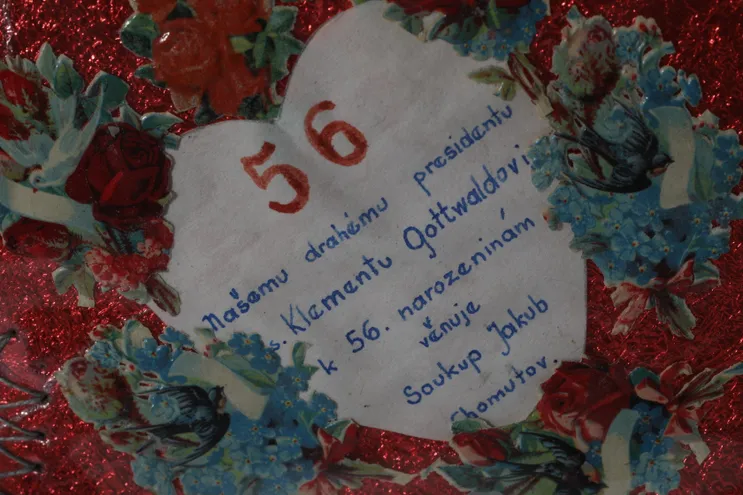 56
Našemu drahému presidentu
s. Klementu Gottwaldovi
k 56. narozeninám
věnuje
Soukup Jakub
Chomutov.